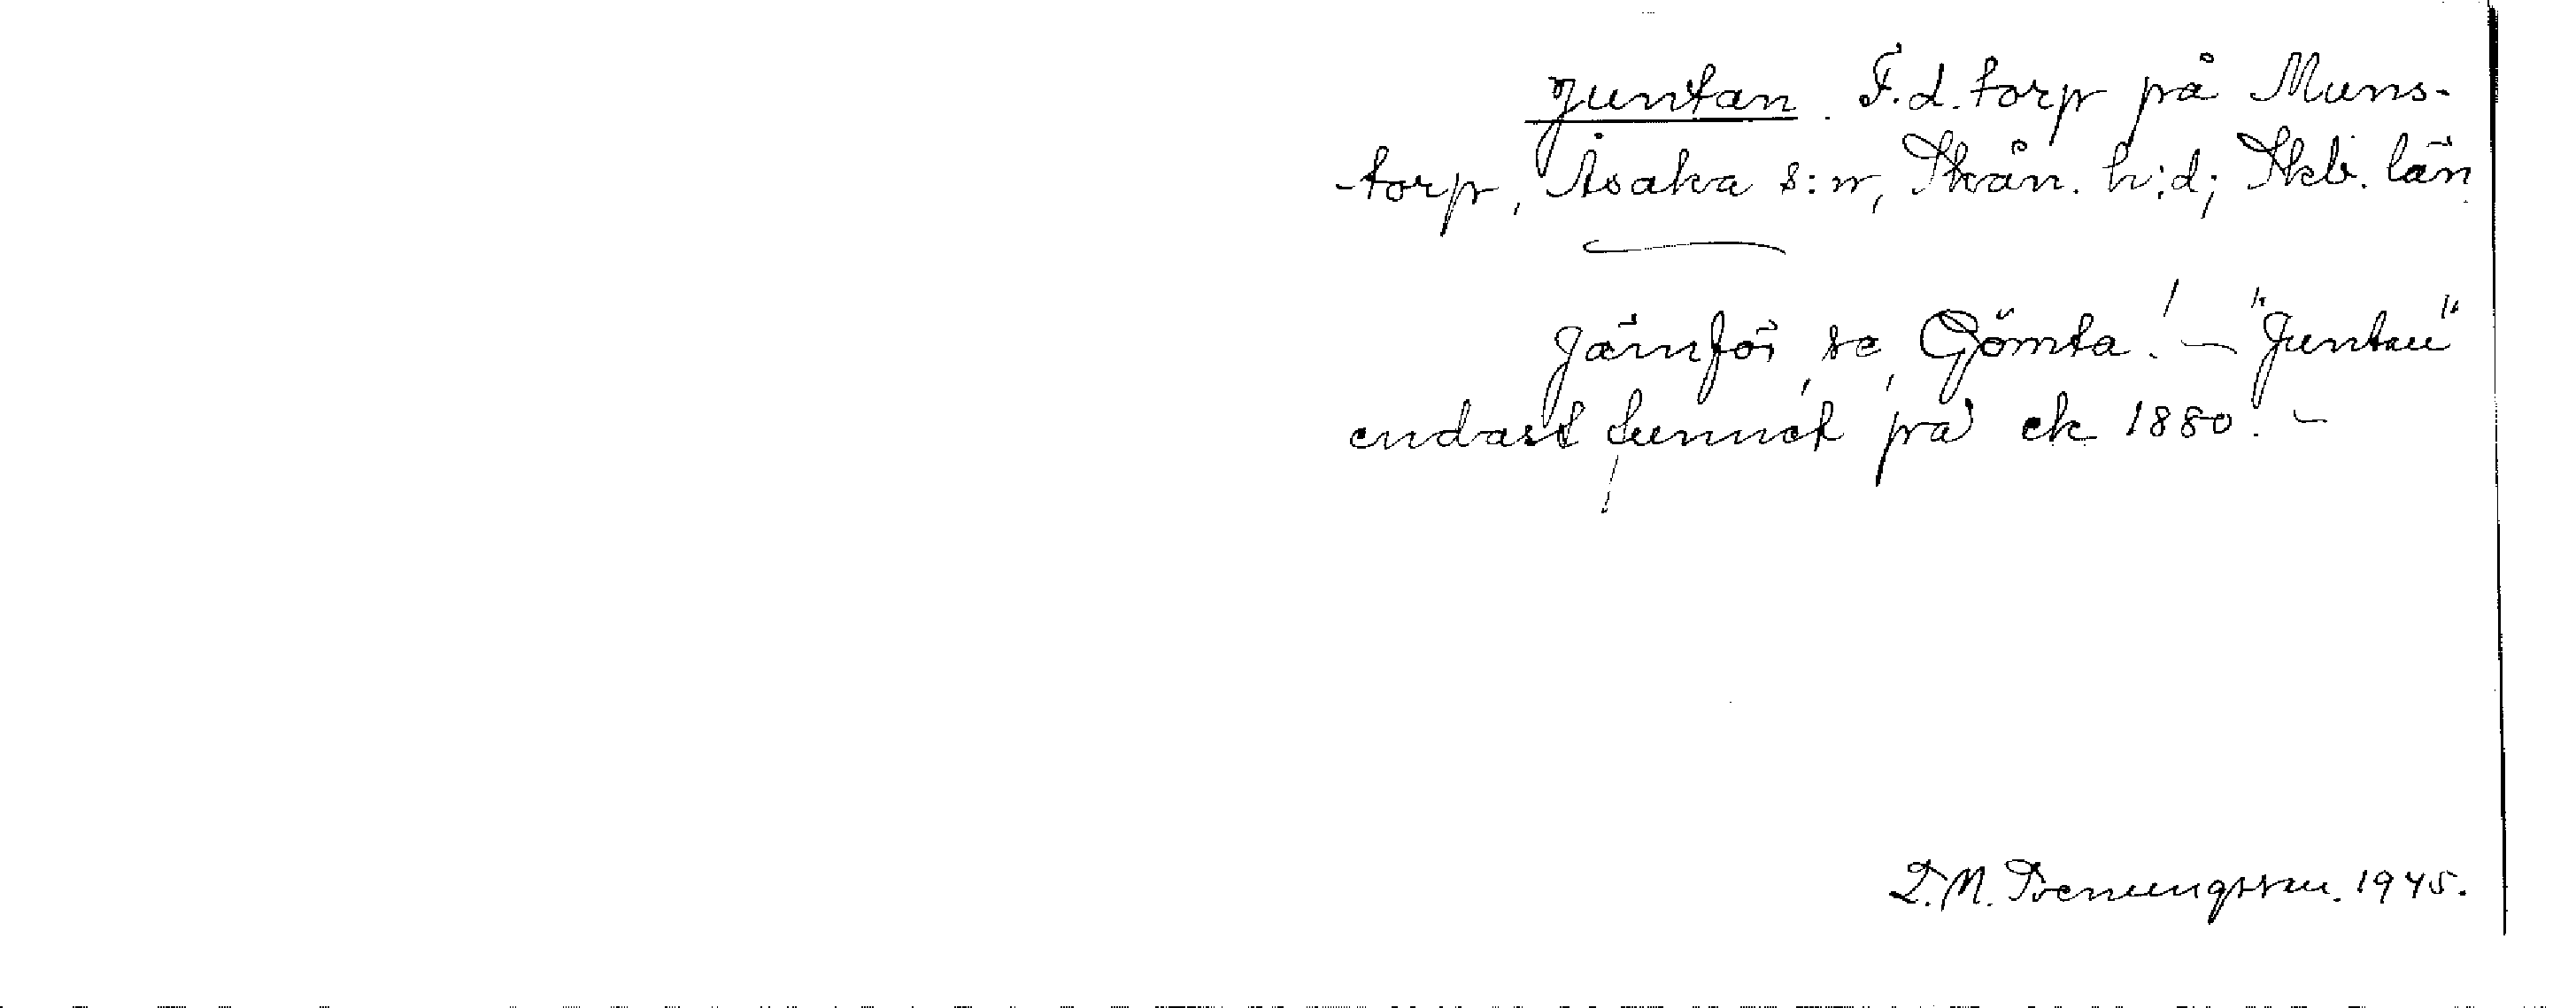 Juntan. F.d. torp på Muns-
torp, Åsaka s:n, Skån. h:d; Skb. län.
Jämför, se, Gömta! — "Juntan"
endast funnet på ek 1880. —
D. N. 1945.